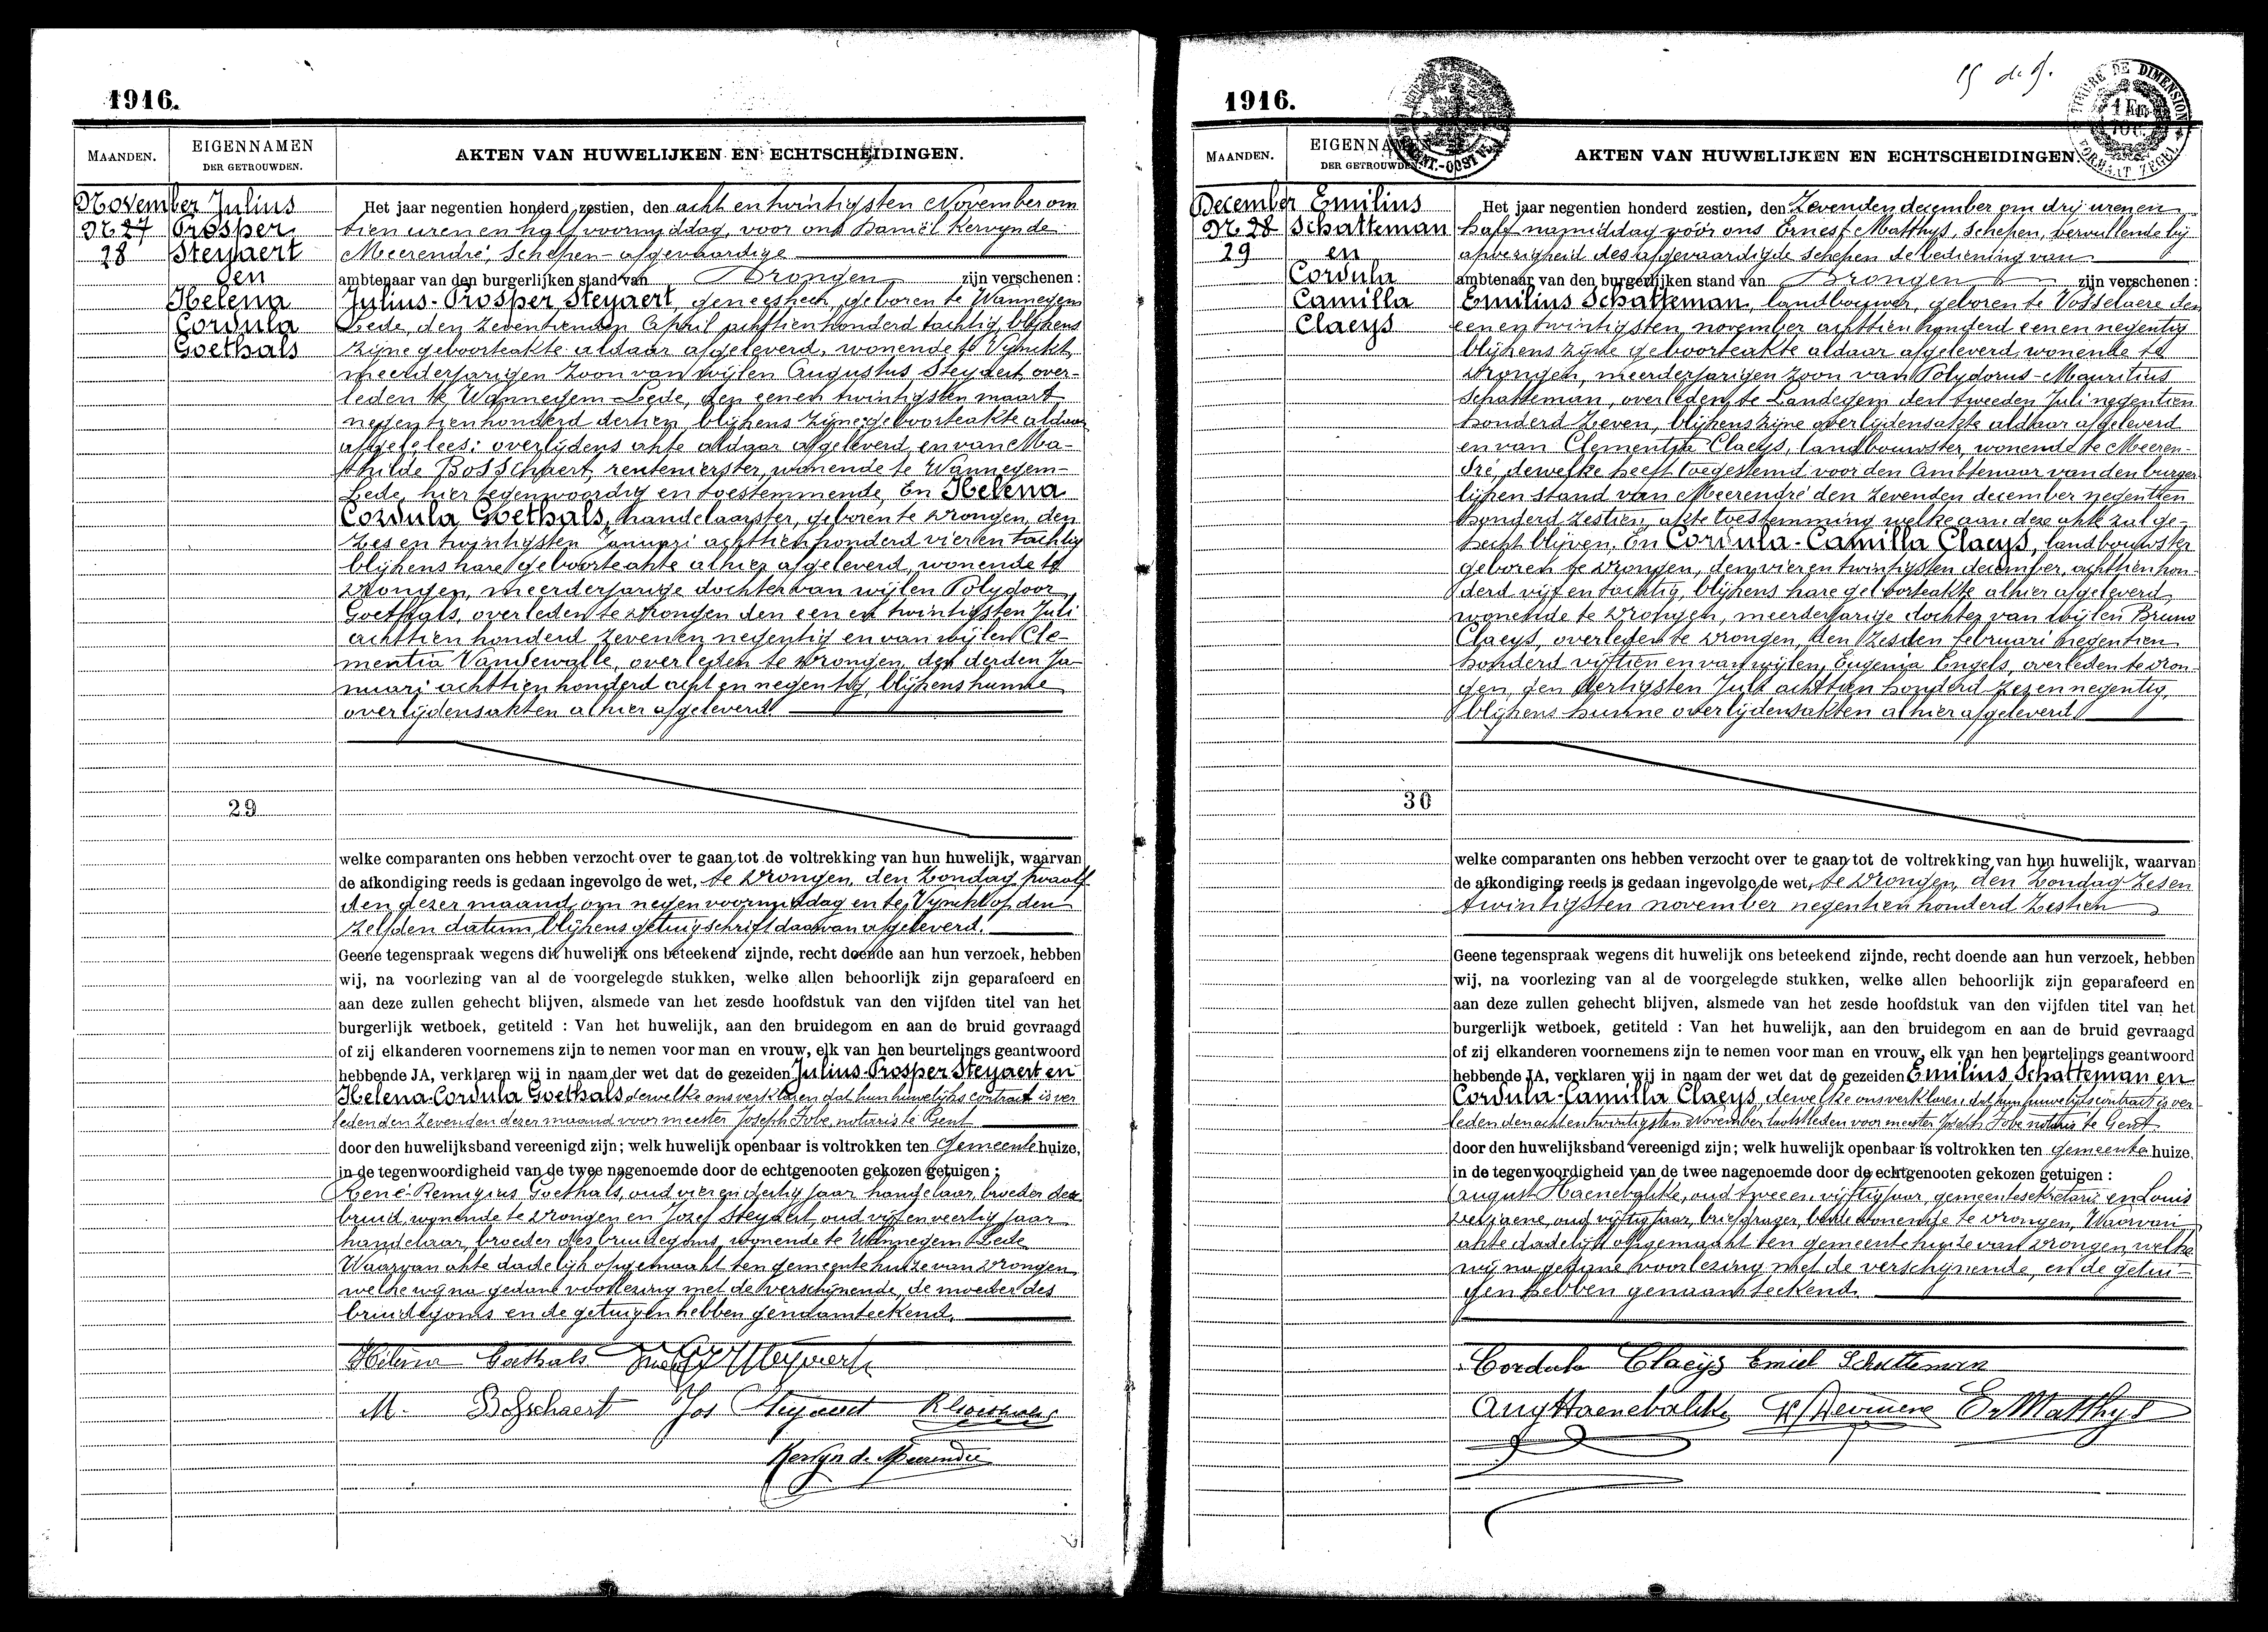 1916.
MAANDEN.
EIGENNAMEN
DER GETROUWDEN.
AKTEN VAN HUWELIJKEN EN ECHTSCHEIDINGEN.
November
Nr 27
28
Julius
Prosper
Steyaert
en
Helena
Cordula
Goethals
29
Het jaar negentien honderd zestien, den acht en twintigsten November om
tien uren en half voormiddag, voor ons Daniël Kervyn de
Meerendré, Schepen-afgevaardige
ambtenaar van den burgerlijken stand van Drongen zijn verschenen :
Julius-Prosper Steyaert, geneesheer, geboren te Wannegem
Lede, den zeventienden April achttien honderd tachtig, blijkens
zijne geboorteakte aldaar afgeleverd, wonende te Vynckt,
meerderjarigen zoon van wijlen Augustus Steyaert, over-
leden te Wannegem-Lede, den eenen twintigsten maart
negentienhonderd dertien, blijkens zijne geboorteakte aldaar
afgele lees: overlijdens akte aldaar afgeleverd, en van Ma-
thilde Bosschaert, rentenierster, wonende te Wannegem-
Lede, hier tegenwoordig en toestemmende, En Helena
Cordula Goethals, handelaarster, geboren te Drongen, den
zes en twintigsten Januari achttien honderd vier en tachtig
blijkens hare geboorteakte alhier afgeleverd, wonende te
Drongen, meerderjarige dochter van wijlen Polydoor
Goethals, overleden te Drongen den een en twintigsten Juli
achttien honderd zeven en negentig en van wijlen Cle-
mentia Vandewalle, overleden te Drongen, den derden Ja-
nuari achttien honderd acht en negentig, blijkens hunne
overlijdensakten alhier afgeleverd.
welke comparanten ons hebben verzocht over te gaan tot de voltrekking van hun huwelijk, waarvan
de afkondiging reeds is gedaan ingevolge de wet, te Drongen, den Zondag twaalf
den dezer maand, om negen voormiddag en te Vynckt op den
zelfden datum, blijkens getuigschrift daarvan afgeleverd.
Geene tegenspraak wegens dit huwelijk ons beteekend zijnde, recht doende aan hun verzoek, hebben
wij, na voorlezing van al de voorgelegde stukken, welke allen behoorlijk zijn geparafeerd en
aan deze zullen gehecht blijven, alsmede van het zesde hoofdstuk van den vijfden titel van het
burgerlijk wetboek, getiteld : Van het huwelijk, aan den bruidegom en aan de bruid gevraagd
of zij elkanderen voornemens zijn te nemen voor man en vrouw, elk van hen beurtelings geantwoord
hebbende JA, verklaren wij in naam der wet dat de gezeiden Julius-Prosper Steyaert en
Helena-Cordula Goethals dewelke ons verklaren dat hun huwelijks contract is ver
leden den zevenden dezer maand voor meester Joseph Fobe, notaris te Gent
door den huwelijksband vereenigd zijn; welk huwelijk openbaar is voltrokken ten Gemeente huize,
in de tegenwoordigheid van de twee nagenoemde door de echtgenooten gekozen getuigen :
René-Remigius Goethals, oud vier en dertig jaar, handelaar, broeder der
bruid, wonende te Drongen en Jozef Steyaert, oud vijf en veertig jaar
handelaar, broeder des bruidegoms, wonende te Wannegem Lede
Waarvan akte dadelijk opgemaakt ten gemeente huize van Drongen
welke wij na gedane voorlezing met de verschijnende, de moeder des
bruidegoms en de getuigen hebben genaamteekend.
Helena Goethals Steyaert
M. Bosschaert Jos Steyaert R Goethals
Kervyn de Meerendré
1916.
MAANDEN.
EIGENNAMEN
DER GETROUWDEN.
AKTEN VAN HUWELIJKEN EN ECHTSCHEIDINGEN.
TIMBRE DE DIMENSION
FORMAAT ZEGEL
December
Nr 28
29
Emilius
Schatteman
en
Cordula
Camilla
Claeys
30
Het jaar negentien honderd zestien, den Zevenden december om drij uren en
half namiddag voor ons Ernest Matthys, Schepen, vervullende bij
afwezigheid des afgevaardigde schepen de bediening van
ambtenaar van den burgerlijken stand van Drongen zijn verschenen :
Emilius Schatteman, landbouwer, geboren te Vosselaere den
een en twintigsten november achttien honderd een en negentig
blijkens zijne geboorteakte aldaar afgeleverd, wonende te
Drongen, meerderjarigen zoon van Polydorus-Mauritius
Schatteman, overleden te Landegem den tweeden Juli negentien
honderd zeven, blijkens zijne overlijdensakte aldaar afgeleverd
en van Clementia Claeys, landbouwster, wonende te Meeren-
dré, dewelke heeft toegestemd voor den Ambtenaar van den burger
lijken stand van Meerendré den zevenden december negentien
honderd zestien, akte toestemming welke aan deze akte zal ge-
hecht blijven. En Cordula-Camilla Claeys, landbouwster
geboren te Drongen, den vier en twintigsten december, achttien hon-
derd vijf en tachtig, blijkens hare geboorteakte alhier afgeleverd
wonende te Drongen, meerderjarige dochter van wijlen Bruno
Claeys, overleden te Drongen, den zesden februari negentien
honderd vijftien en van wijlen Eugenia Engels overleden te Dron-
gen, den dertigsten Juli achttien honderd zes en negentig,
blijkens hunne overlijdensakten alhier afgeleverd
welke comparanten ons hebben verzocht over te gaan tot de voltrekking van hun huwelijk, waarvan
de afkondiging reeds is gedaan ingevolge de wet, te Drongen, den Zondag Zes en
twintigsten november negentien honderd zestien
Geene tegenspraak wegens dit huwelijk ons beteekend zijnde, recht doende aan hun verzoek, hebben
wij, na voorlezing van al de voorgelegde stukken, welke allen behoorlijk zijn geparafeerd en
aan deze zullen gehecht blijven, alsmede van het zesde hoofdstuk van den vijfden titel van het
burgerlijk wetboek, getiteld : Van het huwelijk, aan den bruidegom en aan de bruid gevraagd
of zij elkanderen voornemens zijn te nemen voor man en vrouw, elk van hen beurtelings geantwoord
hebbende JA, verklaren wij in naam der wet dat de gezeiden Emilius Schatteman en
Cordula-Camilla Claeys, dewelke ons verklaren dat hun huwelijkscontract is ver
leden den acht en twintigsten November laatstleden voor meester Joseph Fobe notaris te Gent
door den huwelijksband vereenigd zijn; welk huwelijk openbaar is voltrokken ten gemeente huize,
in de tegenwoordigheid van de twee nagenoemde door de echtgenooten gekozen getuigen :
August Haenebalcke, oud twee en vijftig jaar, gemeentesekretaris en Louis
oud vijftig jaar, briefdrager, beide wonende te Drongen, Waarvan
akte dadelijk opgemaakt ten gemeente huize van Drongen, welke
wij na gedane voorlezing met de verschijnende, en de getui-
gen hebben genaamteekend.
Cordula Claeys Emiel Schatteman
Aug Haenebalcke Er Matthys